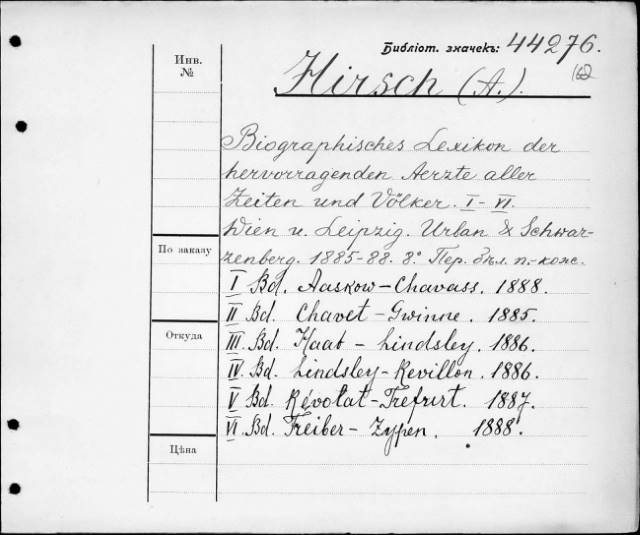 Библіот. значекъ: 44276.
Инв. №
Hirsch (A.).
Biographisches Lexikon der
hervorragenden Aerzte aller
Zeiten und Völker. I-VI.
Wien u. Leipzig. Urban & Schwar-
По заказу
zenberg. 1885-88. 8.° Пер. бѣл. п.-кож.
I Bd. Aaskow-Chavass. 1888.
II Bd. Chavet-Gwinne. 1885.
Откуда
III Bd. Haab-Lindsley. 1886.
IV. Bd. Lindsley-Revillon. 1886.
V Bd. Révolat-Trefurt. 1887.
VI. Bd. Treiber-Zypen. 1888.
Цѣна